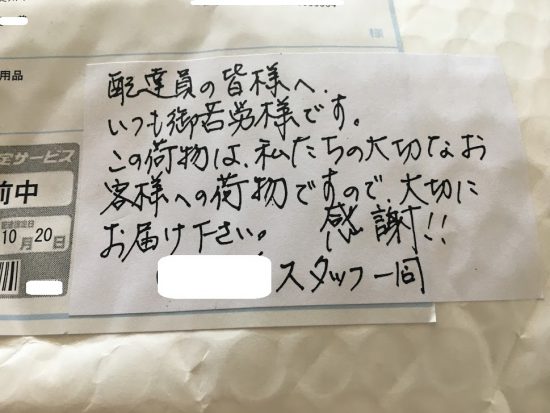 様
用品
定サービス
前中
配達指定日
10月20日
配達員の皆様へ.
いつも御苦労様です。
この荷物は、私たちの大切なお
客様への荷物ですので、大切に
お届け下さい。 感謝!!
スタッフ一同